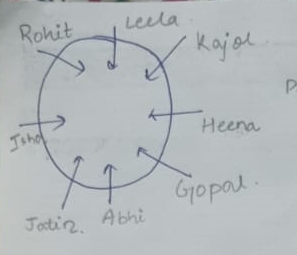 Leela
Rohit
Kajol
P
Heena
Isha
Gopal.
Jatin.
Abhi